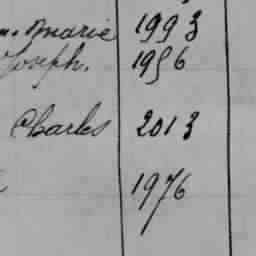 Marie 1993
Joseph. 1956
Charles 2013
1976